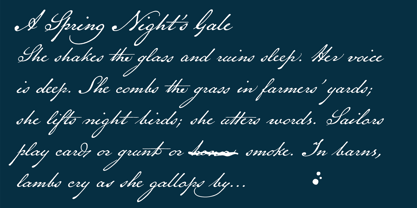 A Spring Night's Gale
She shakes the glass and ruins sleep. Her voice
is deep. She combs the grass in farmers' yards;
she lifts night birds; she utters words. Sailors
play cards or grunt or smoke. In barns,
lambs cry as she gallops by...